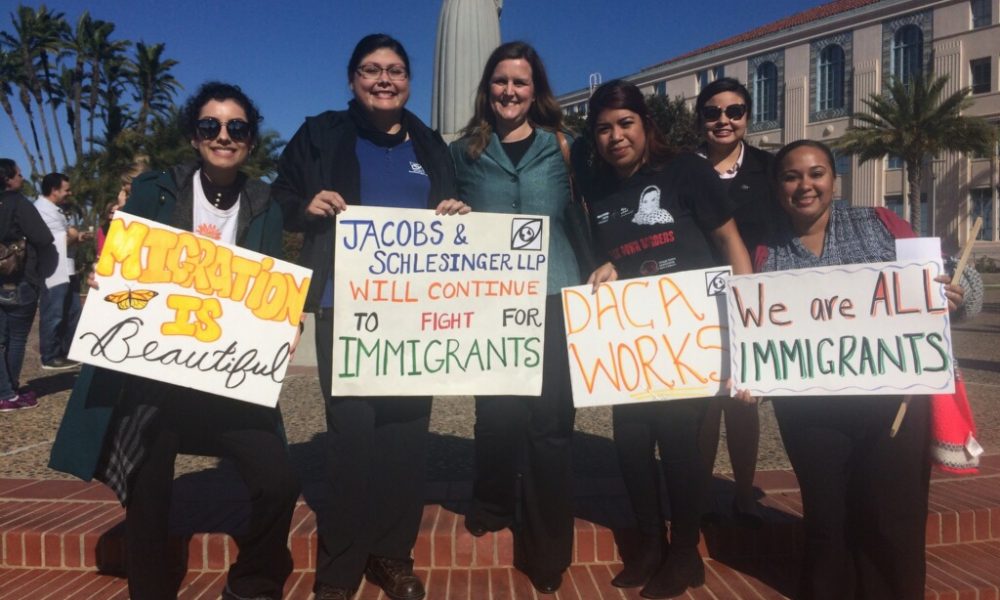 MIGRATION
IS
Beautiful
JACOBS &
SCHLESINGER LLP
WILL CONTINUE
TO FIGHT FOR
IMMIGRANTS
DACA
WORKS
We are ALL
IMMIGRANTS